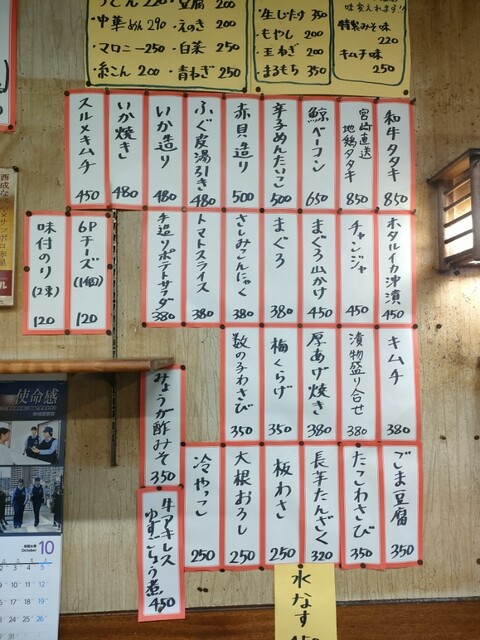 うどん 220
・中華めん 290
・マロニー 250
・糸こん 200
・豆腐 200
・えのき 200
・白菜 250
・青ねぎ 250
・生しいたけ 350
・もやし 200
・玉ねぎ 200
・まるもち 350
味変えれます!!
特製みそ味
220
キムチ味
250
和牛タタキ 850
宮崎直送
地鶏タタキ 850
鯨ベーコン 650
辛子めんたいこ 500
赤貝造り 500
ふぐ皮湯引き 480
いか造り 480
いか焼き 480
スルメキムチ 450
ホタルイカ沖漬 450
チャンジャ 450
まぐろ山かけ 450
まぐろ 380
さしみこんにゃく 380
トマトスライス 380
手造りポテトサラダ 380
6Pチーズ(1個) 120
味付のり(2束) 120
キムチ 380
漬物盛り合せ 380
厚あげ焼き 380
梅くらげ 350
数の子わさび 350
みょうが酢みそ 350
ごま豆腐 350
たこわさび 350
長芋たんざく 320
板わさ 250
大根おろし 250
冷やっこ 250
牛アキレス
ゆずこしょう煮 450
水なす
使命感
10
October